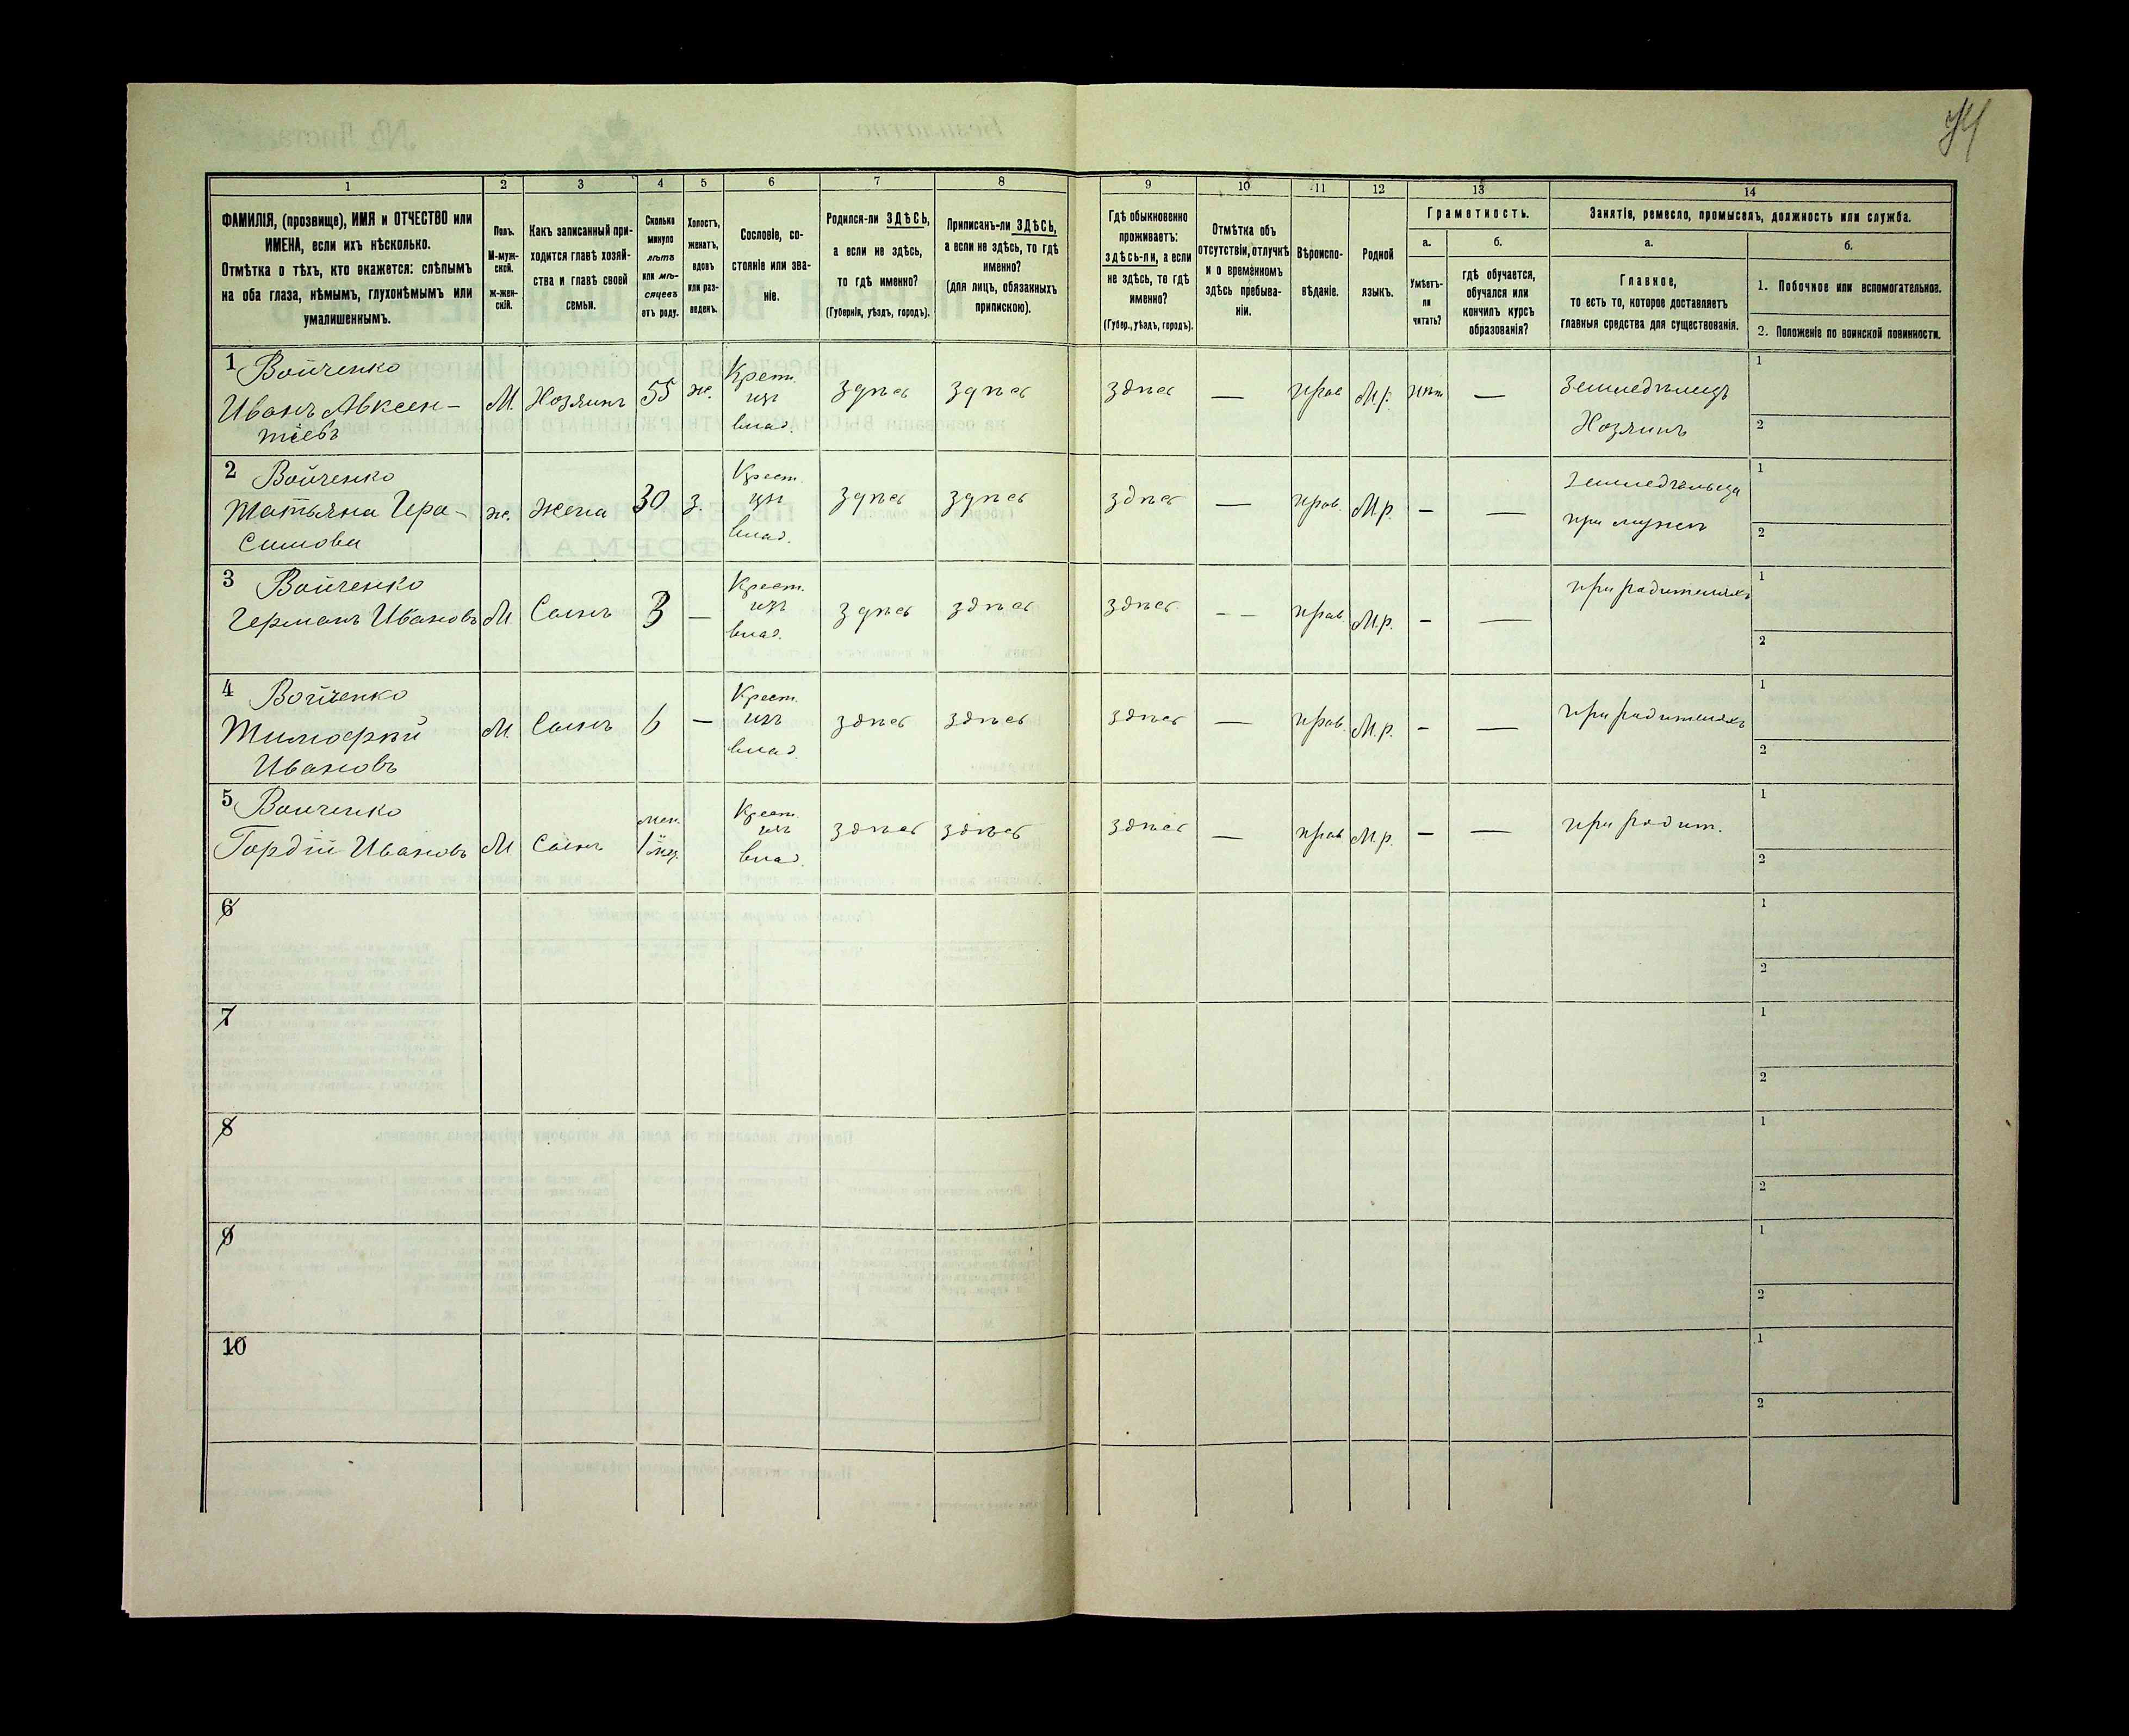 74
1
2
3
4
5
6
7
8
ФАМИЛІЯ, (прозвище), ИМЯ и ОТЧЕСТВО или
ИМЕНА, если ихъ нѣсколько.
Отмѣтка о тѣхъ, кто окажется: слѣпымъ
на оба глаза, нѣмымъ, глухонѣмымъ или
умалишеннымъ.
Полъ.
М-муж-
ской.
ж-жен-
скій.
Какъ записанный при-
ходится главѣ хозяй-
ства и главѣ своей
семьи.
Сколько
минуло
лѣтъ
или мѣ-
сяцевъ
отъ роду.
Холостъ,
женатъ,
вдовъ
или раз-
веденъ.
Сословіе, со-
стояніе или зва-
ніе.
Родился-ли ЗДѢСЬ,
а если не здѣсь,
то гдѣ именно?
(Губернія, уѣздъ, городъ).
Приписанъ-ли ЗДѢСЬ,
а если не здѣсь, то гдѣ
именно?
(Для лицъ, обязанныхъ
припискою).
9
10
11
12
13
14
Гдѣ обыкновенно
проживаетъ:
здѣсь-ли, а если
не здѣсь, то гдѣ
именно?
(Губер., уѣздъ, городъ).
Отмѣтка объ
отсутствіи, отлучкѣ
и о временномъ
здѣсь пребыва-
ніи.
Вѣроиспо-
вѣданіе.
Родной
языкъ.
Грамотность.
а.
Умѣетъ-
ли
читать?
б.
гдѣ обучается,
обучался или
кончилъ курсъ
образованія?
Занятіе, ремесло, промыселъ, должность или служба.
а.
Главное,
то есть то, которое доставляетъ
главныя средства для существованія.
б.
1. Побочное или вспомогательное.
2. Положеніе по воинской повинности.
1 Войченко
Иванъ Авксен-
тіевъ
М. Хозяинъ 55 ж.
Крест.
изъ
влад.
здѣсь здѣсь здѣсь — прав М.р. нѣт —
Земледѣлецъ
Хозяинъ
1
2
2 Войченко
Татьяна Гера-
симова
ж. Жена 30 з.
Крест.
изъ
влад.
здѣсь здѣсь здѣсь — прав. М.р. — —
Земледѣльца
при мужѣ
1
2
3 Войченко
Германъ Ивановъ М Сынъ 3 —
Крест.
изъ
влад.
здѣсь здѣсь здѣсь — — прав. М.р. — —
при родителяхъ
1
2
4 Войченко
Тимофѣй
Ивановъ
М. Сынъ 6 —
Крест.
изъ
влад.
здѣсь здѣсь здѣсь — прав. М.р. — —
при родителяхъ
1
2
5 Войченко
Гордій Ивановъ М Сынъ
Крест.
изъ
влад.
здѣсь здѣсь здѣсь — прав М.р. — —
при родит.
1
2
6
1
2
7
1
2
8
1
2
9
1
2
10
1
2